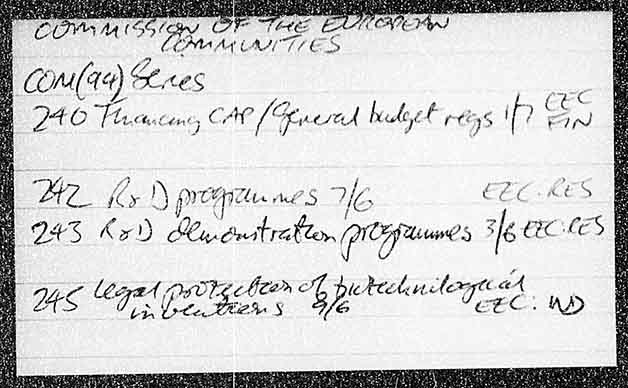 COMMISSION OF THE EUROPEAN
COMMUNITIES
COM(94) Series
240 Financing CAP/General budget regs 1/7 EEC
FIN
242 R&D programmes 7/6 EEC.RES
243 R&D demonstration programmes 3/6 EEC.RES
245 Legal protection of biotechnological
inventions 9/6 EEC. IND